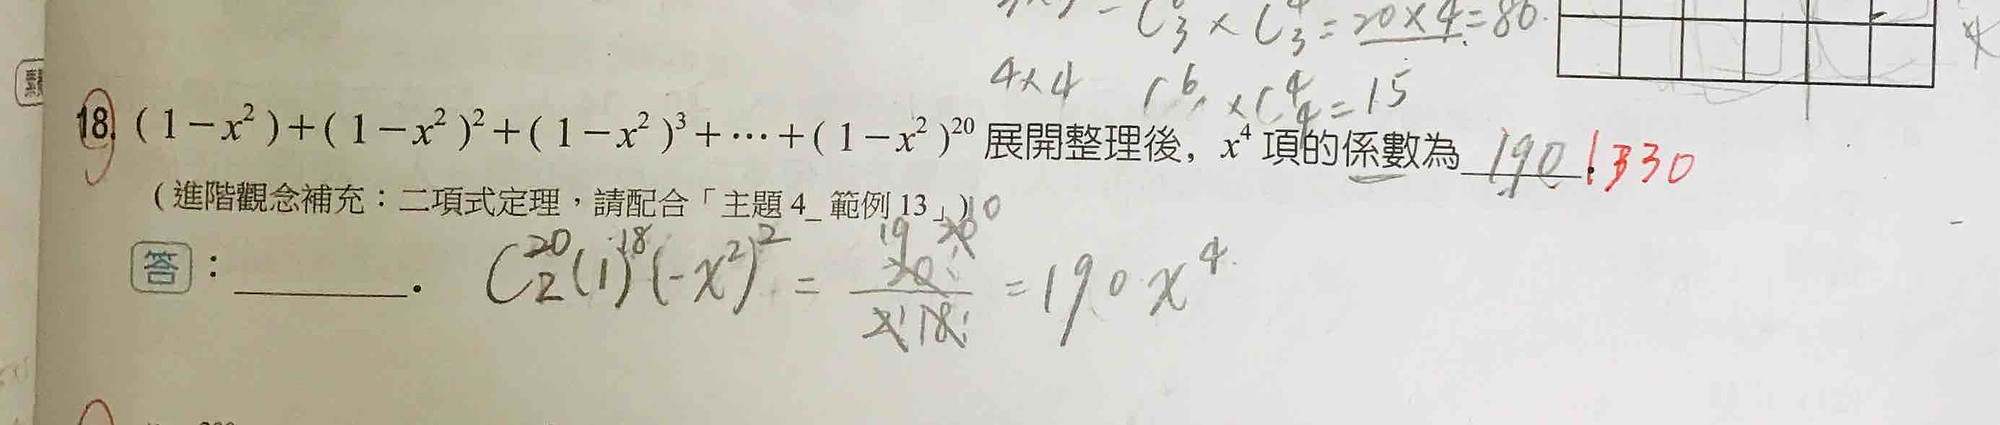 C₃ × C⁴₃ = 20 × 4 = 80.
4×4 C⁶ × C⁴₄ = 15
18. (1－x²)＋(1－x²)²＋(1－x²)³＋⋯＋(1－x²)²⁰ 展開整理後，x⁴ 項的係數為 190 1330
(進階觀念補充：二項式定理，請配合「主題 4_ 範例 13」)
答：______．C²⁰₂(1)¹⁸(-x²)² = 20!/2!18! = 190x⁴